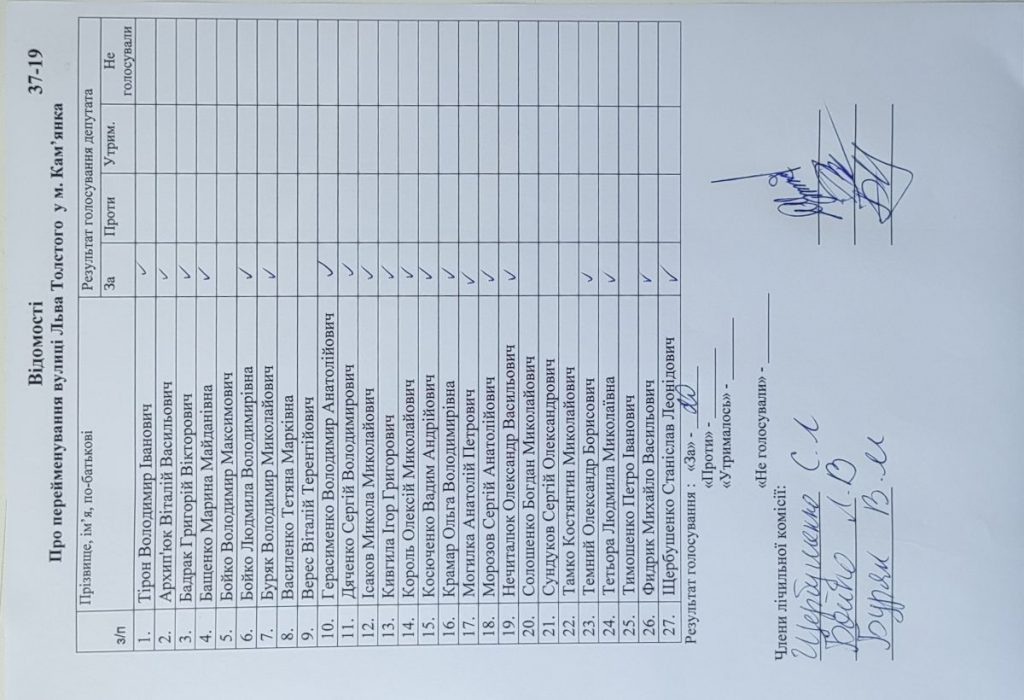 Відомості 37-19
Про перейменування вулиці Льва Толстого у м. Кам’янка
з/п Прізвище, ім’я, по-батькові Результат голосування депутата
За Проти Утрим. Не голосували
1. Тірон Володимир Іванович ✓
2. Архип'юк Віталій Васильович ✓
3. Бадрак Григорій Вікторович ✓
4. Бащенко Марина Майданівна ✓
5. Бойко Володимир Максимович
6. Бойко Людмила Володимирівна ✓
7. Буряк Володимир Миколайович ✓
8. Василенко Тетяна Марківна
9. Верес Віталій Терентійович
10. Герасименко Володимир Анатолійович ✓
11. Дяченко Сергій Володимирович ✓
12. Ісаков Микола Миколайович ✓
13. Кивгила Ігор Григорович ✓
14. Король Олексій Миколайович ✓
15. Косюченко Вадим Андрійович ✓
16. Крамар Ольга Володимирівна ✓
17. Могилка Анатолій Петрович ✓
18. Морозов Сергій Анатолійович ✓
19. Нечиталюк Олександр Васильович ✓
20. Солошенко Богдан Миколайович
21. Сундуков Сергій Олександрович
22. Тамко Костянтин Миколайович
23. Темний Олександр Борисович ✓
24. Тетьора Людмила Миколаївна ✓
25. Тимошенко Петро Іванович
26. Фидрик Михайло Васильович ✓
27. Щербушенко Станіслав Леонідович ✓
Результат голосування : «За» - 20
«Проти» -
«Утрималось» -
«Не голосували» -
Члени лічильної комісії:
Щербушенко С.Л
Бойко Л.В
Буряк В.М